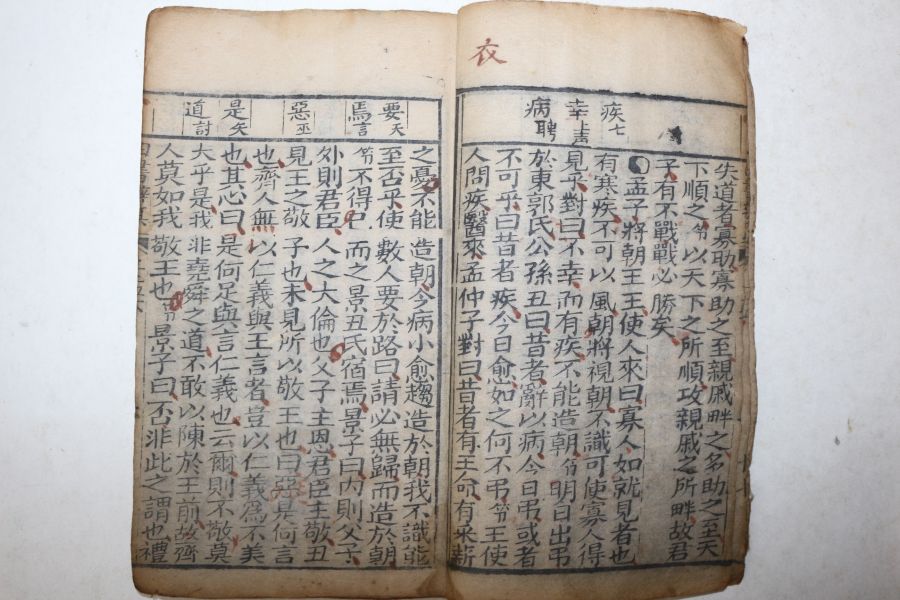 衣
疾七
幸
病聘
失道者寡助寡助之至親戚畔之多助之至天
下順之以天下之所順攻親戚之所畔故君
子有不戰戰必勝矣
孟子將朝王王使人來曰寡人如就見者也
有寒疾不可以風朝將視朝不識可使寡人得
見乎對曰不幸而有疾不能造朝明日出弔
於東郭氏公孫丑曰昔者辭以病今日弔或者
不可乎曰昔者疾今日愈如之何不弔王使
人問疾醫來孟仲子對曰昔者有王命有采薪
要天
焉言
惡巫
是矢
道討
之憂不能造朝今病小愈趨造於朝我不識能
至否乎使數人要於路曰請必無歸而造於朝
不得已而之景丑氏宿焉景子曰內則父子
外則君臣人之大倫也父子主恩君臣主敬丑
見王之敬子也未見所以敬王也曰惡是何言
也齊人無以仁義與王言者豈以仁義爲不美
也其心曰是何足與言仁義也云爾則不敬莫
大乎是我非堯舜之道不敢以陳於王前故齊
人莫如我敬王也景子曰否非此之謂也禮